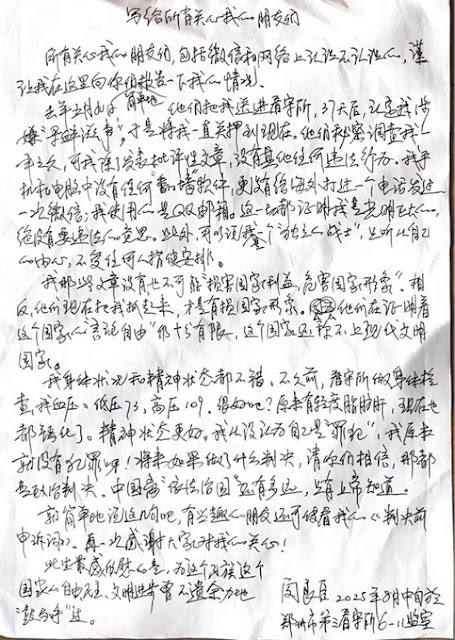 写给所有关心我的朋友们
所有关心我的朋友们，包括微信和网络上认识不认识的，谨
让我在这里向你们报告一下我的情况。
去年五月九日 他们把我送进看守所，37天后，认定我涉
嫌"寻衅滋事"，于是将我一直关押到现在。他们秘密调查我
年之久，可我除了发表批评性文章，没有其他任何违法行为。我手
机和电脑中没有任何"翻墙"软件，更没有给海外打过一个电话发过
一次微信；我使用的是QQ邮箱。这一切都证明我是光明正大的，
绝没有要违法的意思。此外，可以说我是个"独立战士"，只听从自己
的内心，不受任何人指使安排。
我那些文章没有也不可能"损害国家利益、危害国家形象"。相
反，他们现在把我抓起来，才是有损国家形象。他们在证明着
这个国家的言论自由"仍十分"有限，这个国家还称不上现代文明
国家。
我身体状况和精神状态都不错。不久前，看守所做身体检
查，我血压：低压73，高压109，很好吧？原来有轻度脂肪肝，现在也
都强化了。精神状态更好。我从没认为自己是"罪犯"，我原本
就没有犯罪呀！将来如果做了什么判决，请你们相信，那都
是政治判决。中国离"依法治国"还有多远，只有上帝知道。
就简单地说这几句吧，有兴趣的朋友还可以看我的《判决前
申诉词》。再一次感谢大家对我的关心！
此生最感欣慰的是，为这个 这个
国家的自由民主、文明进步曾不遗余力地
"鼓与呼"过。
闵良臣 2025年8月中旬于
郑州市第三看守所6-11监室